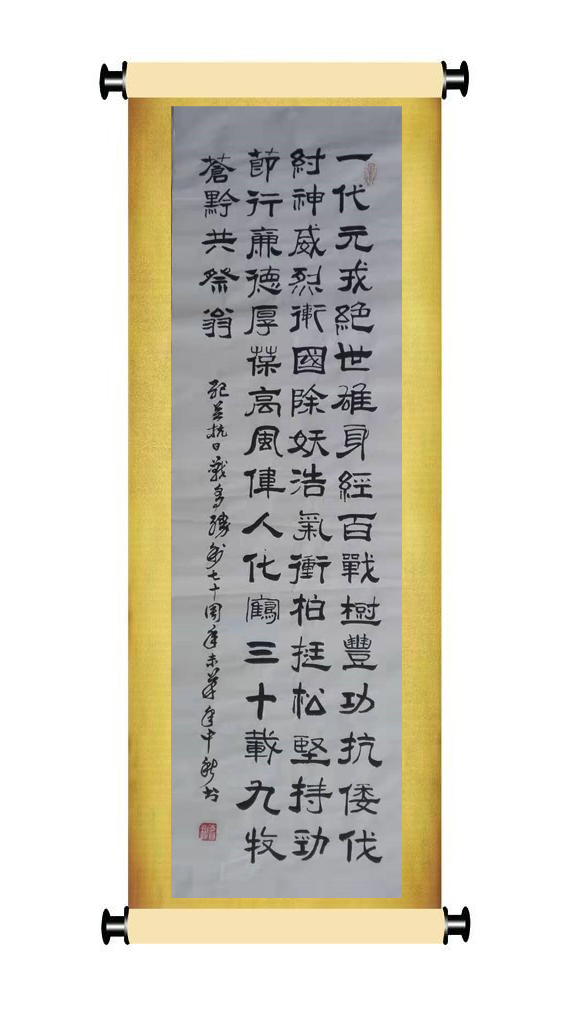 一代元戎絕世雄身經百戰樹豐功抗倭伐
紂神威烈衛國除妖浩氣衝柏挺松堅持勁
節行廉德厚葆高風偉人化鶴三十載九牧
蒼黔共祭翁
紀念抗日戰爭勝利七十周年 中秋书